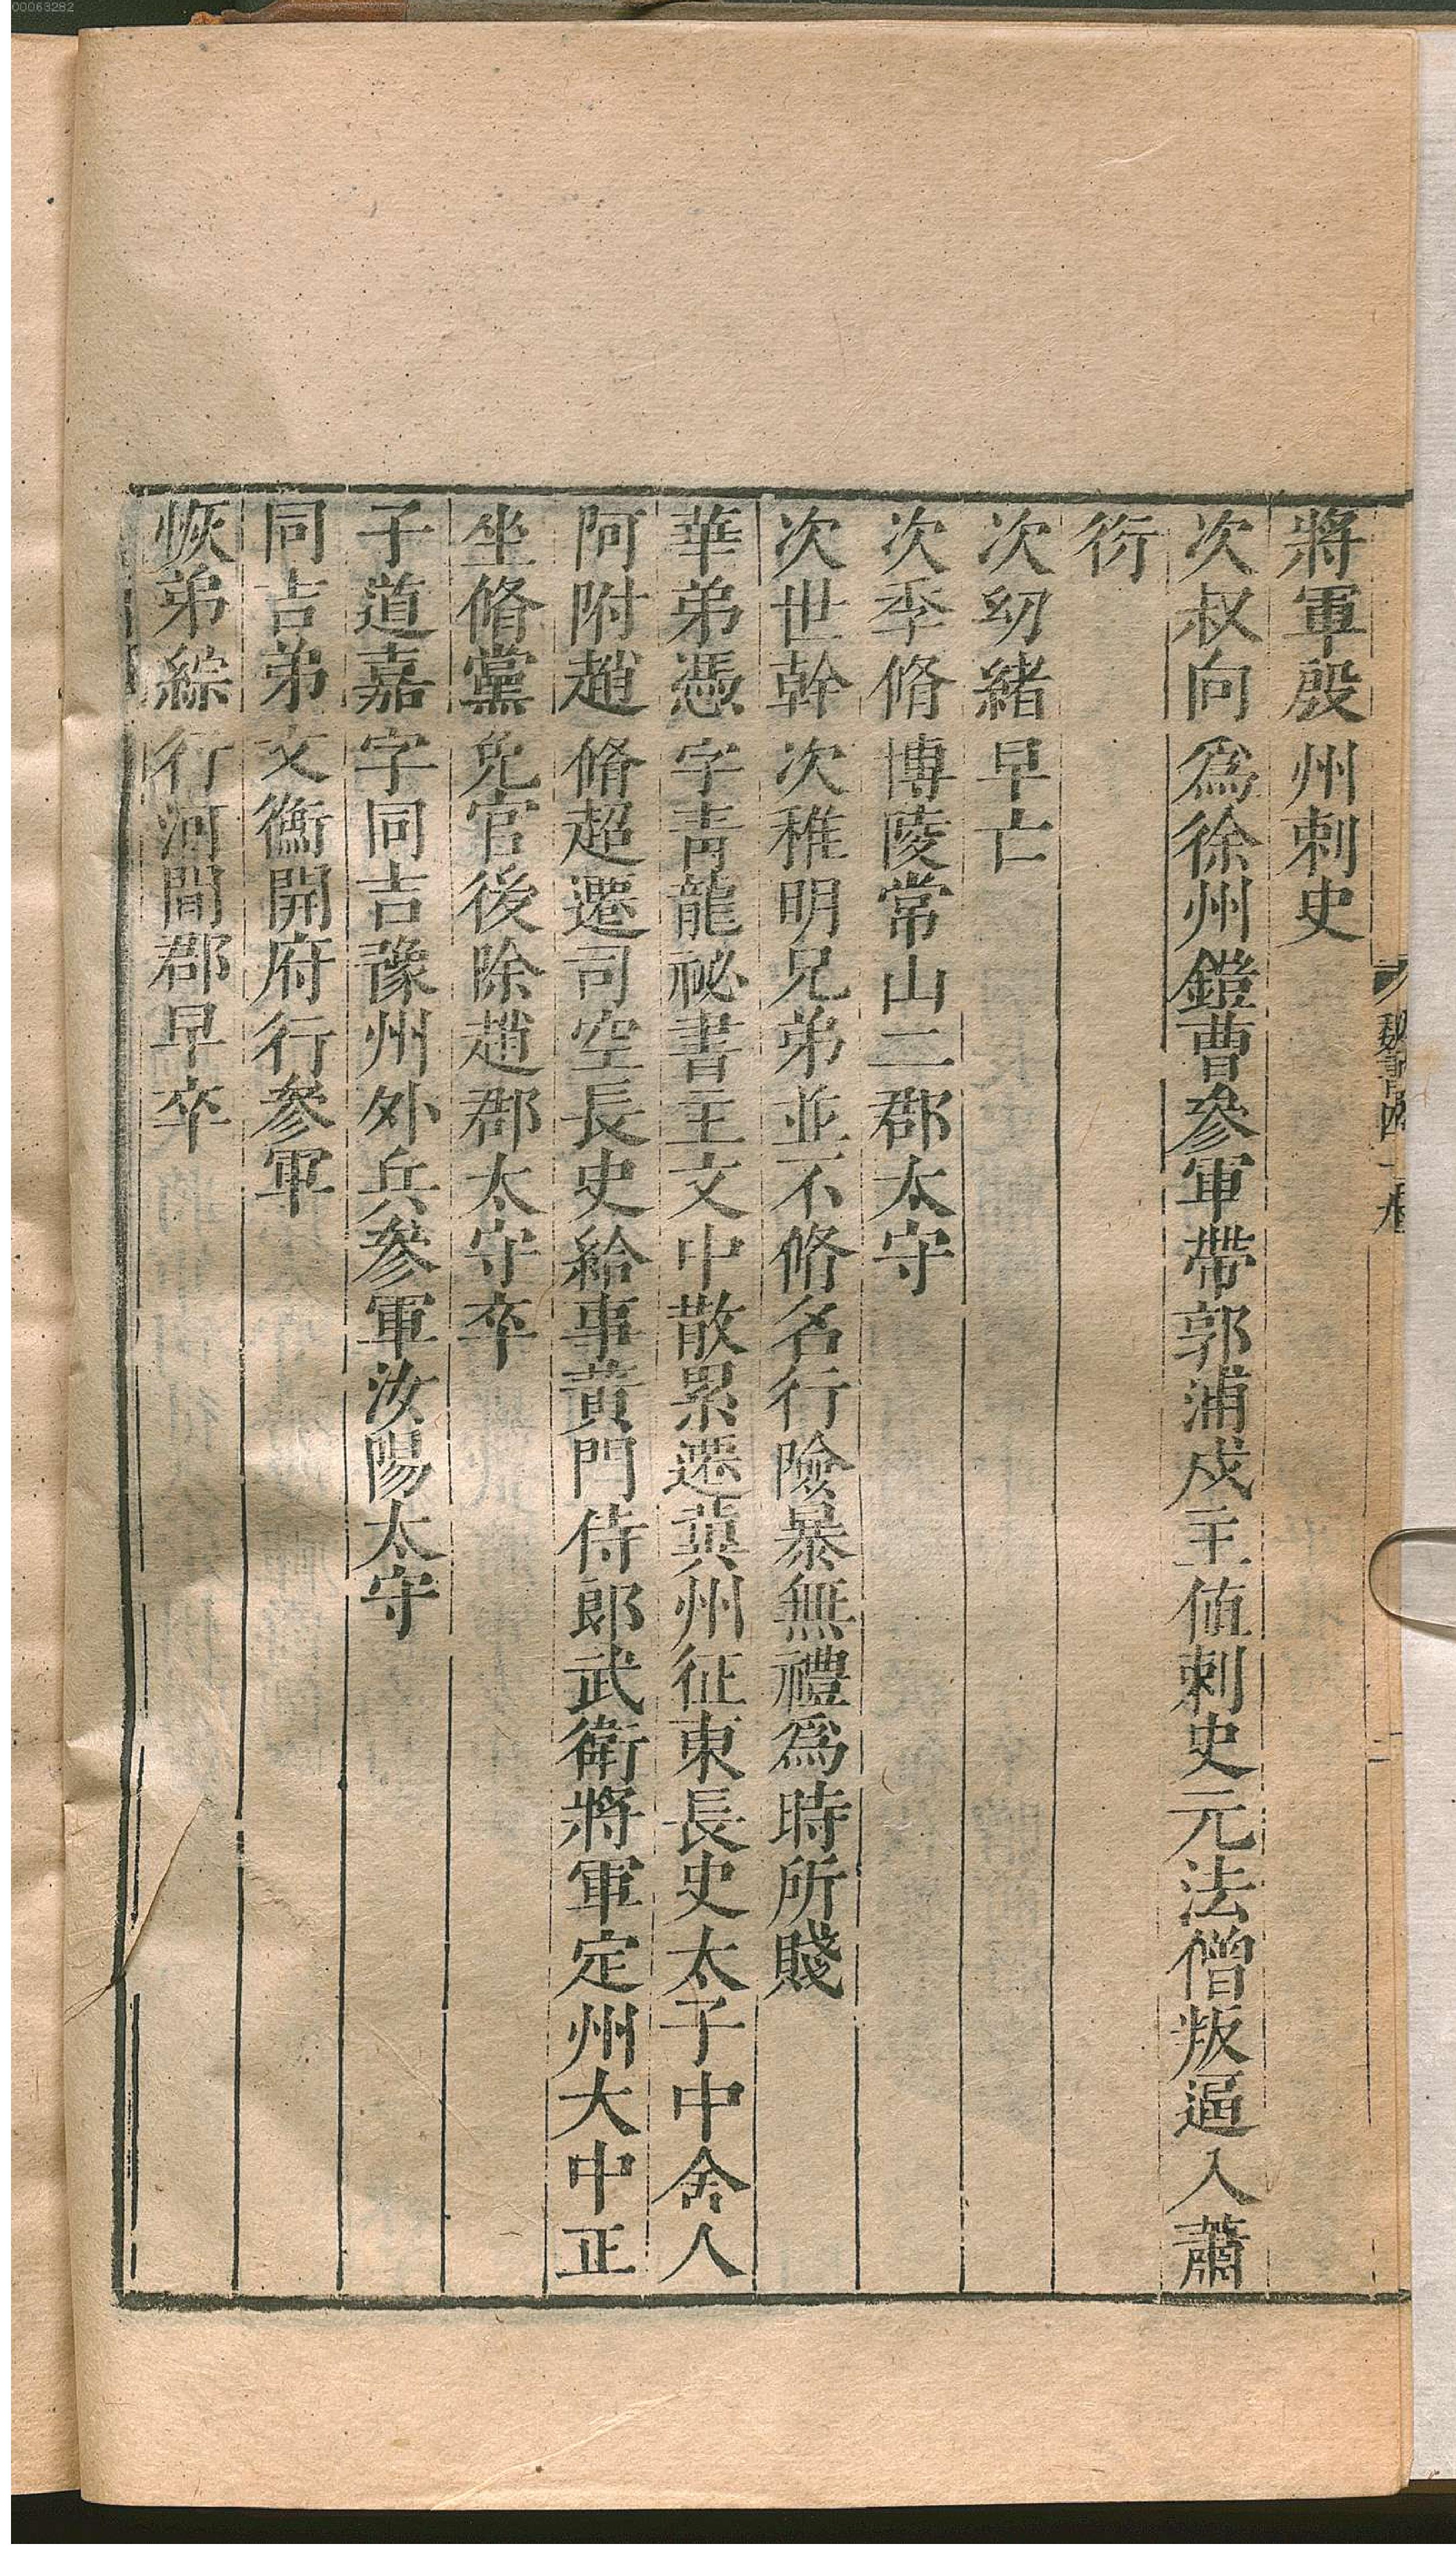 00063282
將軍殷州刺史
次叔向爲徐州鎧曹參軍帶郭浦戍主值刺史元法僧叛逼入蕭
衍
次幼緒早亡
次季脩博陵常山二郡太守
次世幹次稚明兄弟並不脩名行險暴無禮爲時所賤
華弟憑字青龍祕書主文中散累遷冀州征東長史太子中舍人
阿附趙脩超遷司空長史給事黃門侍郎武衛將軍定州大中正
坐脩黨免官後除趙郡太守卒
子道嘉字同吉豫州外兵參軍汝陽太守
同吉弟文衡開府行參軍
恢弟綜行河間郡早卒